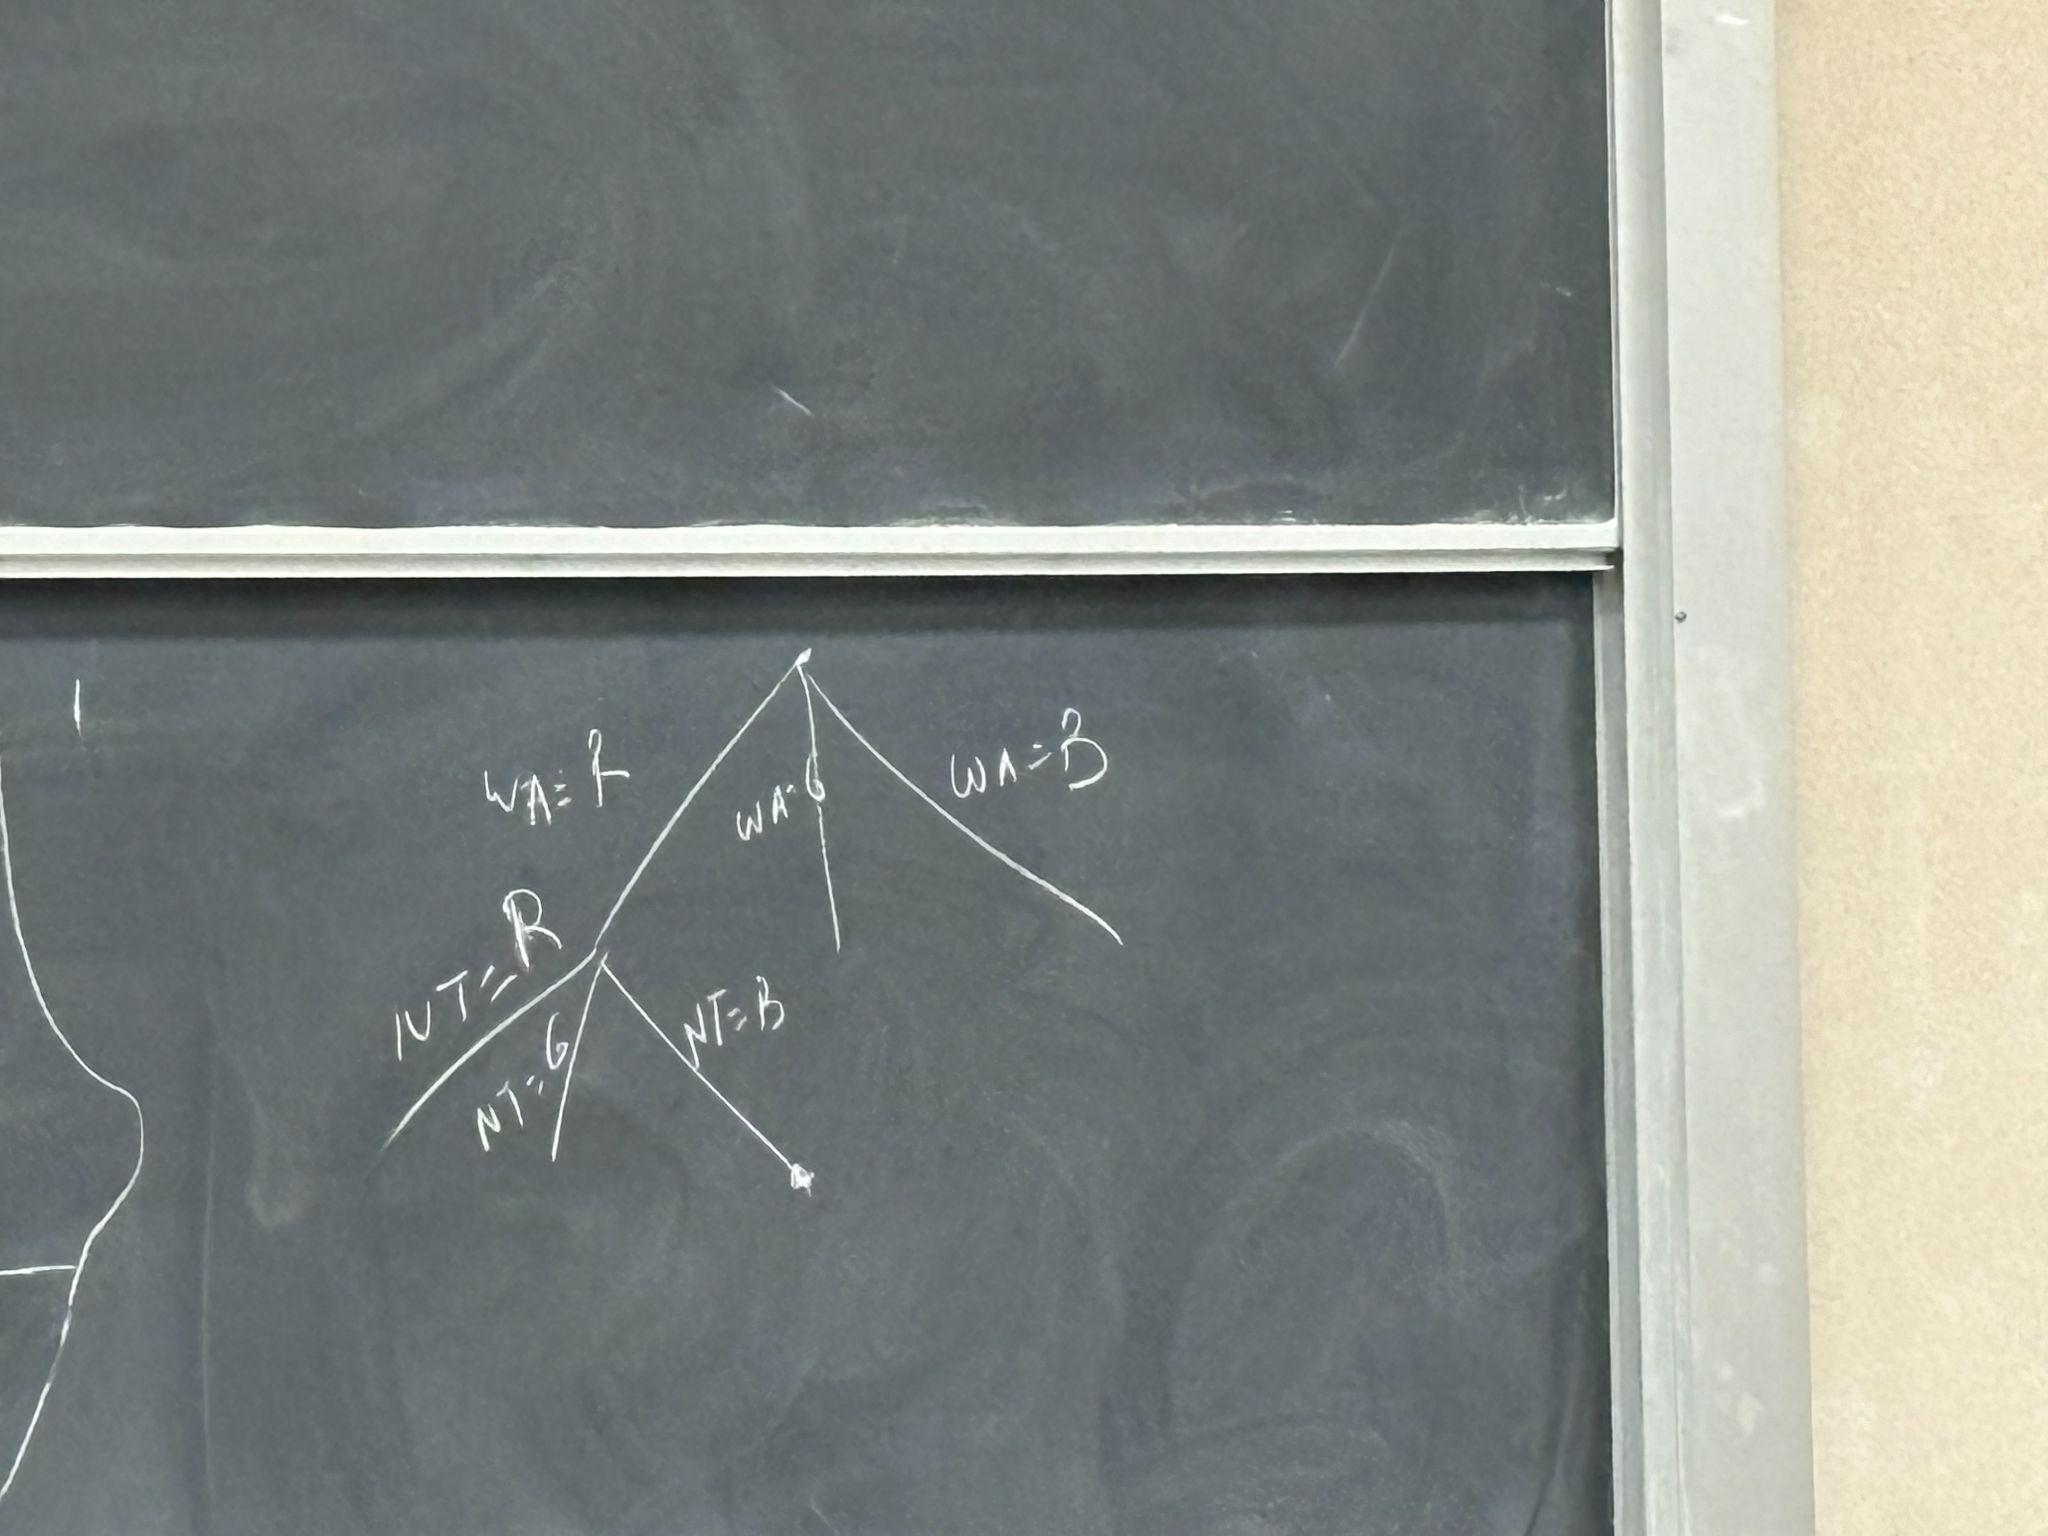 WA=R
WA=G
WA=B
NT=R
NT=G
NT=B